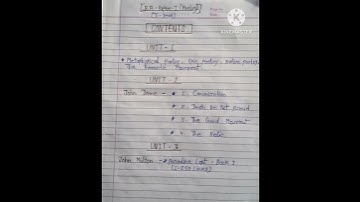 CONTENTS
UNIT - 1
• Metaphysical Poetry, Epic Poetry,
The Romantic Movement.
UNIT - 2
John Donne - • 1. Canonization
• 2. Death Be Not Proud
• 3. The Good Morrow
• 4. The Relic
UNIT - 3
John Milton → Paradise Lost - Book I
(1-250 Lines)